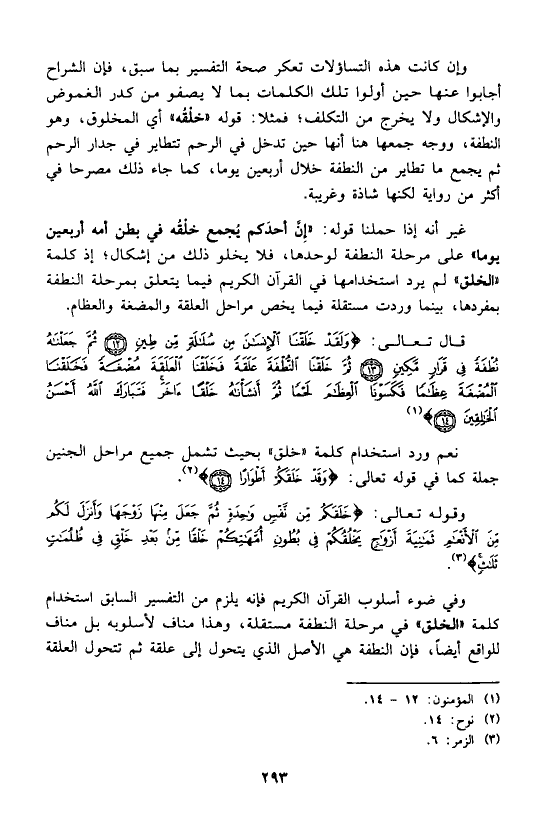 وإن كانت هذه التساؤلات تعكر صحة التفسير بما سبق، فإن الشراح
أجابوا عنها حين أولوا تلك الكلمات بما لا يصفو من كدر الغموض
والإشكال ولا يخرج من التكلف؛ فمثلا: قوله «خلْقُه» أي المخلوق، وهو
النطفة، ووجه جمعها هنا أنها حين تدخل في الرحم تتطاير في جدار الرحم
ثم يجمع ما تطاير من النطفة خلال أربعين يوما، كما جاء ذلك مصرحا في
أكثر من رواية لكنها شاذة وغريبة.
غير أنه إذا حملنا قوله: «إنَّ أحدَكم يُجمع خلْقُه في بطن أمه أربعين
يوما» على مرحلة النطفة لوحدها، فلا يخلو ذلك من إشكال؛ إذ كلمة
«الخلق» لم يرد استخدامها في القرآن الكريم فيما يتعلق بمرحلة النطفة
بمفردها، بينما وردت مستقلة فيما يخص مراحل العلقة والمضغة والعظام.
قال تعالى: ﴿وَلَقَدْ خَلَقْنَا الْإِنسَانَ مِن سُلَالَةٍ مِّن طِينٍ ١٢ ثُمَّ جَعَلْنَاهُ
نُطْفَةً فِي قَرَارٍ مَّكِينٍ ١٣ ثُمَّ خَلَقْنَا النُّطْفَةَ عَلَقَةً فَخَلَقْنَا الْعَلَقَةَ مُضْغَةً فَخَلَقْنَا
الْمُضْغَةَ عِظَامًا فَكَسَوْنَا الْعِظَامَ لَحْمًا ثُمَّ أَنشَأْنَاهُ خَلْقًا ءَاخَرَ فَتَبَارَكَ اللَّهُ أَحْسَنُ
الْخَالِقِينَ ١٤﴾(١)
نعم ورد استخدام كلمة «خلق» بحيث تشمل جميع مراحل الجنين
جملة كما في قوله تعالى: ﴿وَقَدْ خَلَقَكُمْ أَطْوَارًا ١٤﴾(٢).
وقوله تعالى: ﴿خَلَقَكُم مِّن نَّفْسٍ وَاحِدَةٍ ثُمَّ جَعَلَ مِنْهَا زَوْجَهَا وَأَنزَلَ لَكُم
مِّنَ الْأَنْعَامِ ثَمَانِيَةَ أَزْوَاجٍ يَخْلُقُكُمْ فِي بُطُونِ أُمَّهَاتِكُمْ خَلْقًا مِّنْ بَعْدِ خَلْقٍ فِي ظُلُمَاتٍ
ثَلَاثٍ﴾(٣).
وفي ضوء أسلوب القرآن الكريم فإنه يلزم من التفسير السابق استخدام
كلمة «الخلق» في مرحلة النطفة مستقلة، وهذا مناف لأسلوبه بل مناف
للواقع أيضاً، فإن النطفة هي الأصل الذي يتحول إلى علقة ثم تتحول العلقة
(١) المؤمنون: ١٢ – ١٤.
(٢) نوح: ١٤.
(٣) الزمر: ٦.
٢٩٣